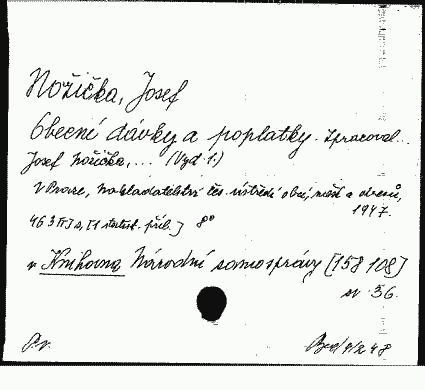 Nožička, Josef
Obecní dávky a poplatky. Zpracoval...
Josef Nožička,... (Vyd. 1.)
V Praze, Nakladatelství čes. ústředí obcí, měst a okresů,
1947.
463 [1] s, [1 statist. příl.] 8°
v Knihovna Národní samosprávy [158108]
sv. 36.